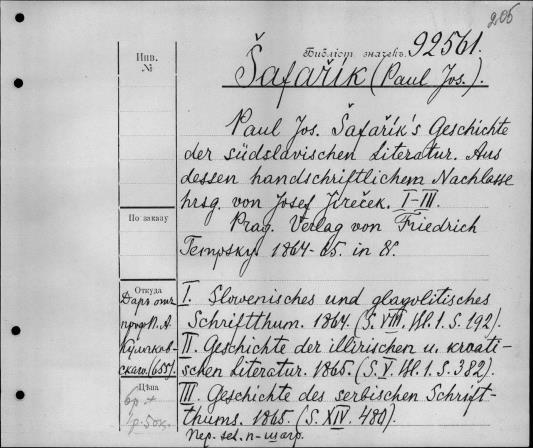 205
Библіот. значекъ. 92561.
Инв.
№
Šafařík (Paul Jos.).
Paul Jos. Šafařík's Geschichte
der südslavischen Literatur. Aus
dessen handschriftlichem Nachlasse
hrsg. von Josef Jireček. I–III.
По заказу
Prag. Verlag von Friedrich
Tempsky. 1864–65. in 8°.
Откуда
Даръ отъ
проф. П. А.
Кулаков-
скаго. (655).
I. Slovenisches und glagolitisches
Schriftthum. 1864. (S. VIII. Bl. 1. S. 192).
II. Geschichte der illirischen u. kroati-
schen Literatur. 1865. (S. V. Bl. 1. S. 382).
Цѣна
6р. +
1р. 50к.
III. Geschichte des serbischen Schrift-
thums. 1865. (S. XIV. 480).